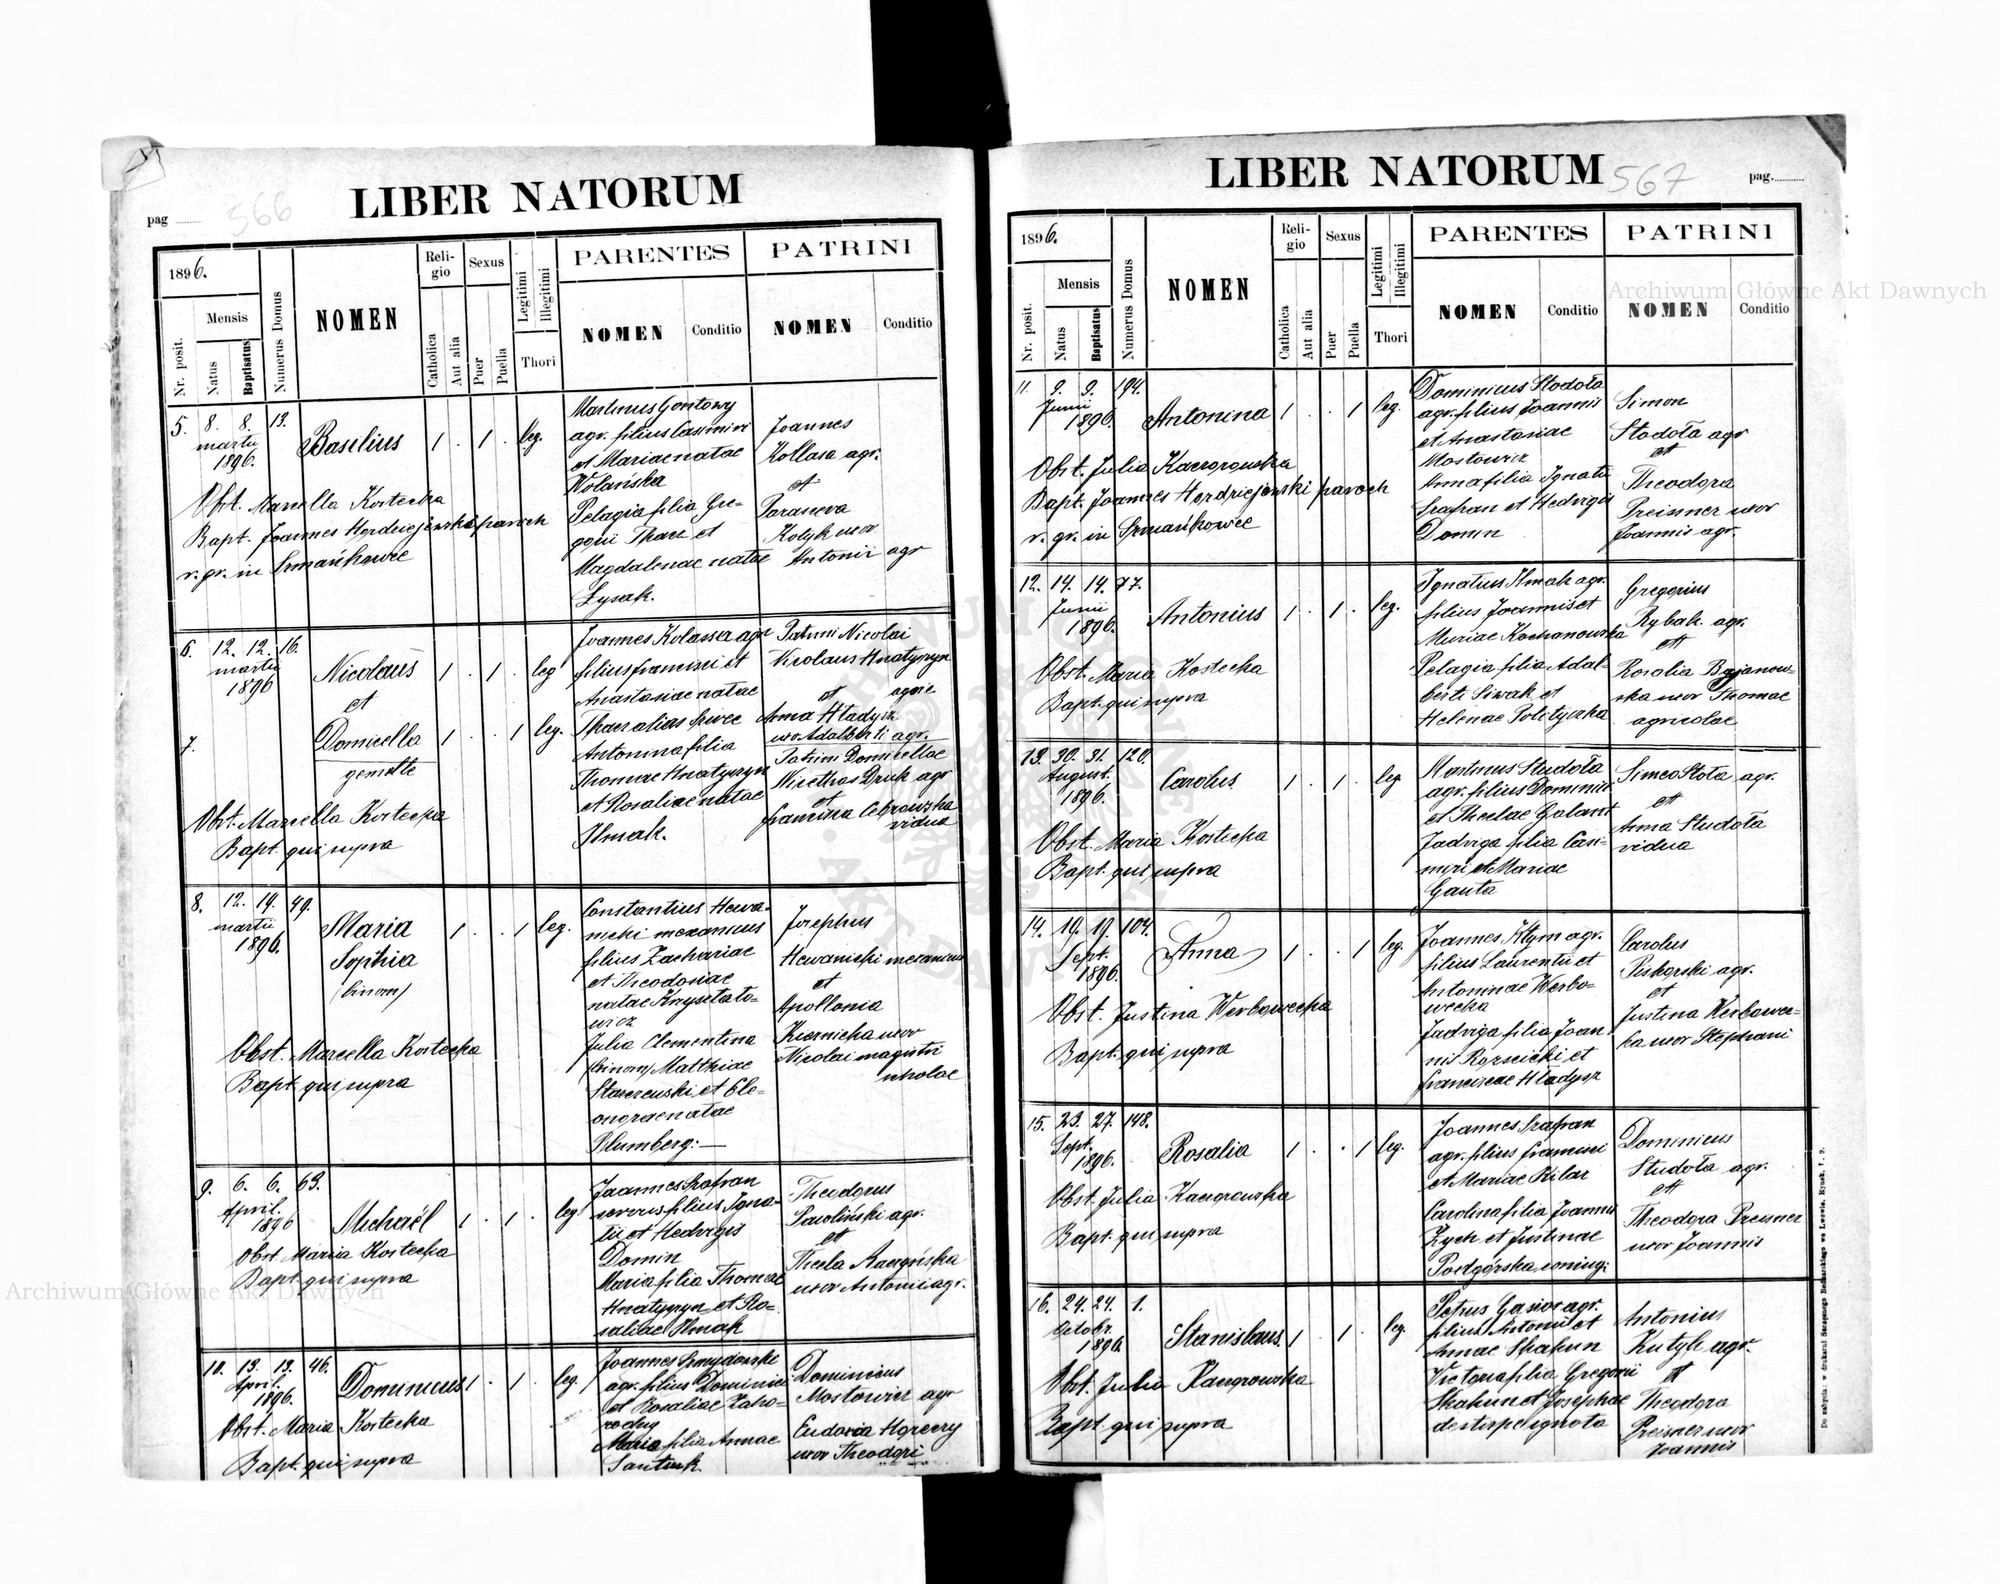 LIBER NATORUM
pag
566
1896.
Mensis
Nr. posit.
Natus
Baptisatus
Numerus Domus
NOMEN
Reli-
gio
Catholica
Aut alia
Sexus
Puer
Puella
Legitimi
Illegitimi
Thori
PARENTES
NOMEN
Conditio
PATRINI
NOMEN
Conditio
5. 8. 8. 13.
martii
1896.
Basilius 1 . 1 . leg.
Obst. Marcella Kostecka
Bapt. Joannes Hordziejewski paroch
r. gr. in Szmańkowce
Martinus Gontowy
agr. filius Casimiri
et Mariae natae
Wolańska
Pelagia filia Gre-
gorii Tkacz et
Magdalenae natae
Łysak.
Joannes
Kollasa agr.
et
Parasceva
Kotyk uxor
Antonii agr
6. 12. 12. 16.
martii
1896
Nicolaus 1 . 1 . leg
et
7.
Domicella 1 . . 1 leg.
gemelle
Obst. Marcella Kostecka
Bapt. qui supra
Joannes Kolassa agr
filius Francisci et
Anastasiae natae
Tkacz alias Szwec
Antonina filia
Thomae Hnatyszyn
et Rosaliae natae
Hmak.
Patrini Nicolai
Nicolaus Hnatyszyn
et agric.
Anna Hładysz
uxor Adalberti agr.
Patrini Domicellae
Nicethas Druk agr
et
Francisca Cebrowska
vidua
8. 12. 14. 49.
martii
1896.
Maria 1 . . 1 leg.
Sophia
(binom)
Obst. Marcella Kostecka
Bapt. qui supra
Constantius Hewa-
nicki mexanicus
filius Zachariae
et Theodosiae
natae Krysztato-
wicz
Julia Clementina
(binom) Matthiae
Starczewski et Ele-
onorae natae
Blumberg: —
Josephus
Hewanicki mexanicus
et
Apollonia
Kiernicka uxor
Nicolai magistri
scholae
9. 6. 6. 63.
April.
1896
Michaël 1 . 1 . leg
Obst. Maria Kostecka
Bapt. qui supra
Joannes Szafran
filius Igna-
tii et Hedvigis
Domin
Maria filia Thomae
Hnatyszyn et Ro-
saliae Hmak
Theodorus
Pawliński agr.
et
Thecla
uxor Antonii agr.
10. 13. 13. 46.
April.
1896.
Dominicus 1 . 1 . leg.
Obst. Maria Kostecka
Bapt. qui supra
Joannes
agr. filius Dominici
et Rosaliae Zaho-
rodny
Maria filia Annae
Dominicus
Mostowicz agr
Eudoxia
uxor Theodori
LIBER NATORUM
567
pag.
1896.
Mensis
Nr. posit.
Natus
Baptisatus
Numerus Domus
NOMEN
Reli-
gio
Catholica
Aut alia
Sexus
Puer
Puella
Legitimi
Illegitimi
Thori
PARENTES
NOMEN
Conditio
PATRINI
NOMEN
Conditio
11. 9. 9. 194.
Junii
1896.
Antonina 1 . . 1 leg.
Obst. Julia Kaczorowska
Bapt. Joannes Hordziejewski paroch
r. gr. in Szmańkowce
Dominicus Stodoła
agr. filius Joannis
et Anastasiae
Mostowicz
Anna filia Ignatii
Szafran et Hedvigis
Domin
Simon
Stodoła agr
et
Theodora
Preisner uxor
Joannis agr.
12. 14. 14. 77.
Junii
1896.
Antonius 1 . 1 . leg.
Obst. Maria Kostecka
Bapt. qui supra
Ignatius Hmak agr.
filius Joannis et
Mariae Kochanowska
Pelagia filia Adal-
berti Siwak et
Helenae Polityczka
Gregorius
Rybak agr.
et
Rosalia Bajanow-
ska uxor Thomae
agricolae
13. 30. 31. 120.
August.
1896.
Carolus 1 . 1 . leg
Obst. Maria Kostecka
Bapt. qui supra
Martinus Studoła
agr. filius Dominici
et Theclae Galant
Jadviga filia Casi-
miri et Mariae
Gauta
Simeo Stoła agr.
et
Anna Studoła
vidua
14. 19. 19. 104.
Sept.
1896.
Anna 1 . . 1 leg.
Obst. Justina Werbowecka
Bapt. qui supra
Joannes Kłym agr.
filius Laurentii et
Antoninae Werbo-
wecka
Jadviga filia Joan
nis et
Franciscae Hładysz
Carolus
Piskorski agr.
et
Justina Werbowec-
ka uxor Stephani
15. 23. 27. 148.
Sept.
1896.
Rosalia 1 . . 1 leg.
Obst. Julia Kaczorowska
Bapt. qui supra
Joannes Szafran
agr. filius Francisci
et Mariae Bilar
Carolina filia Joannis
Zych et Justinae
Podgórska coniug:
Dominicus
Studoła agr.
et
Theodora Preisner
uxor Joannis
16. 24. 24. 1.
Octobr.
1896
Stanislaus 1 . 1 . leg.
Obst. Julia Kaczorowska
Bapt. qui supra
Petrus Gasior agr.
filius Antonii et
Annae Skakun
Victoria filia Gregorii
Skakun et Josephae
de stirpe ignota
Antonius
Kutyk agr.
et
Theodora
Preisner uxor
Joannis
Archiwum Główne Akt Dawnych
Archiwum Główne Akt Dawnych